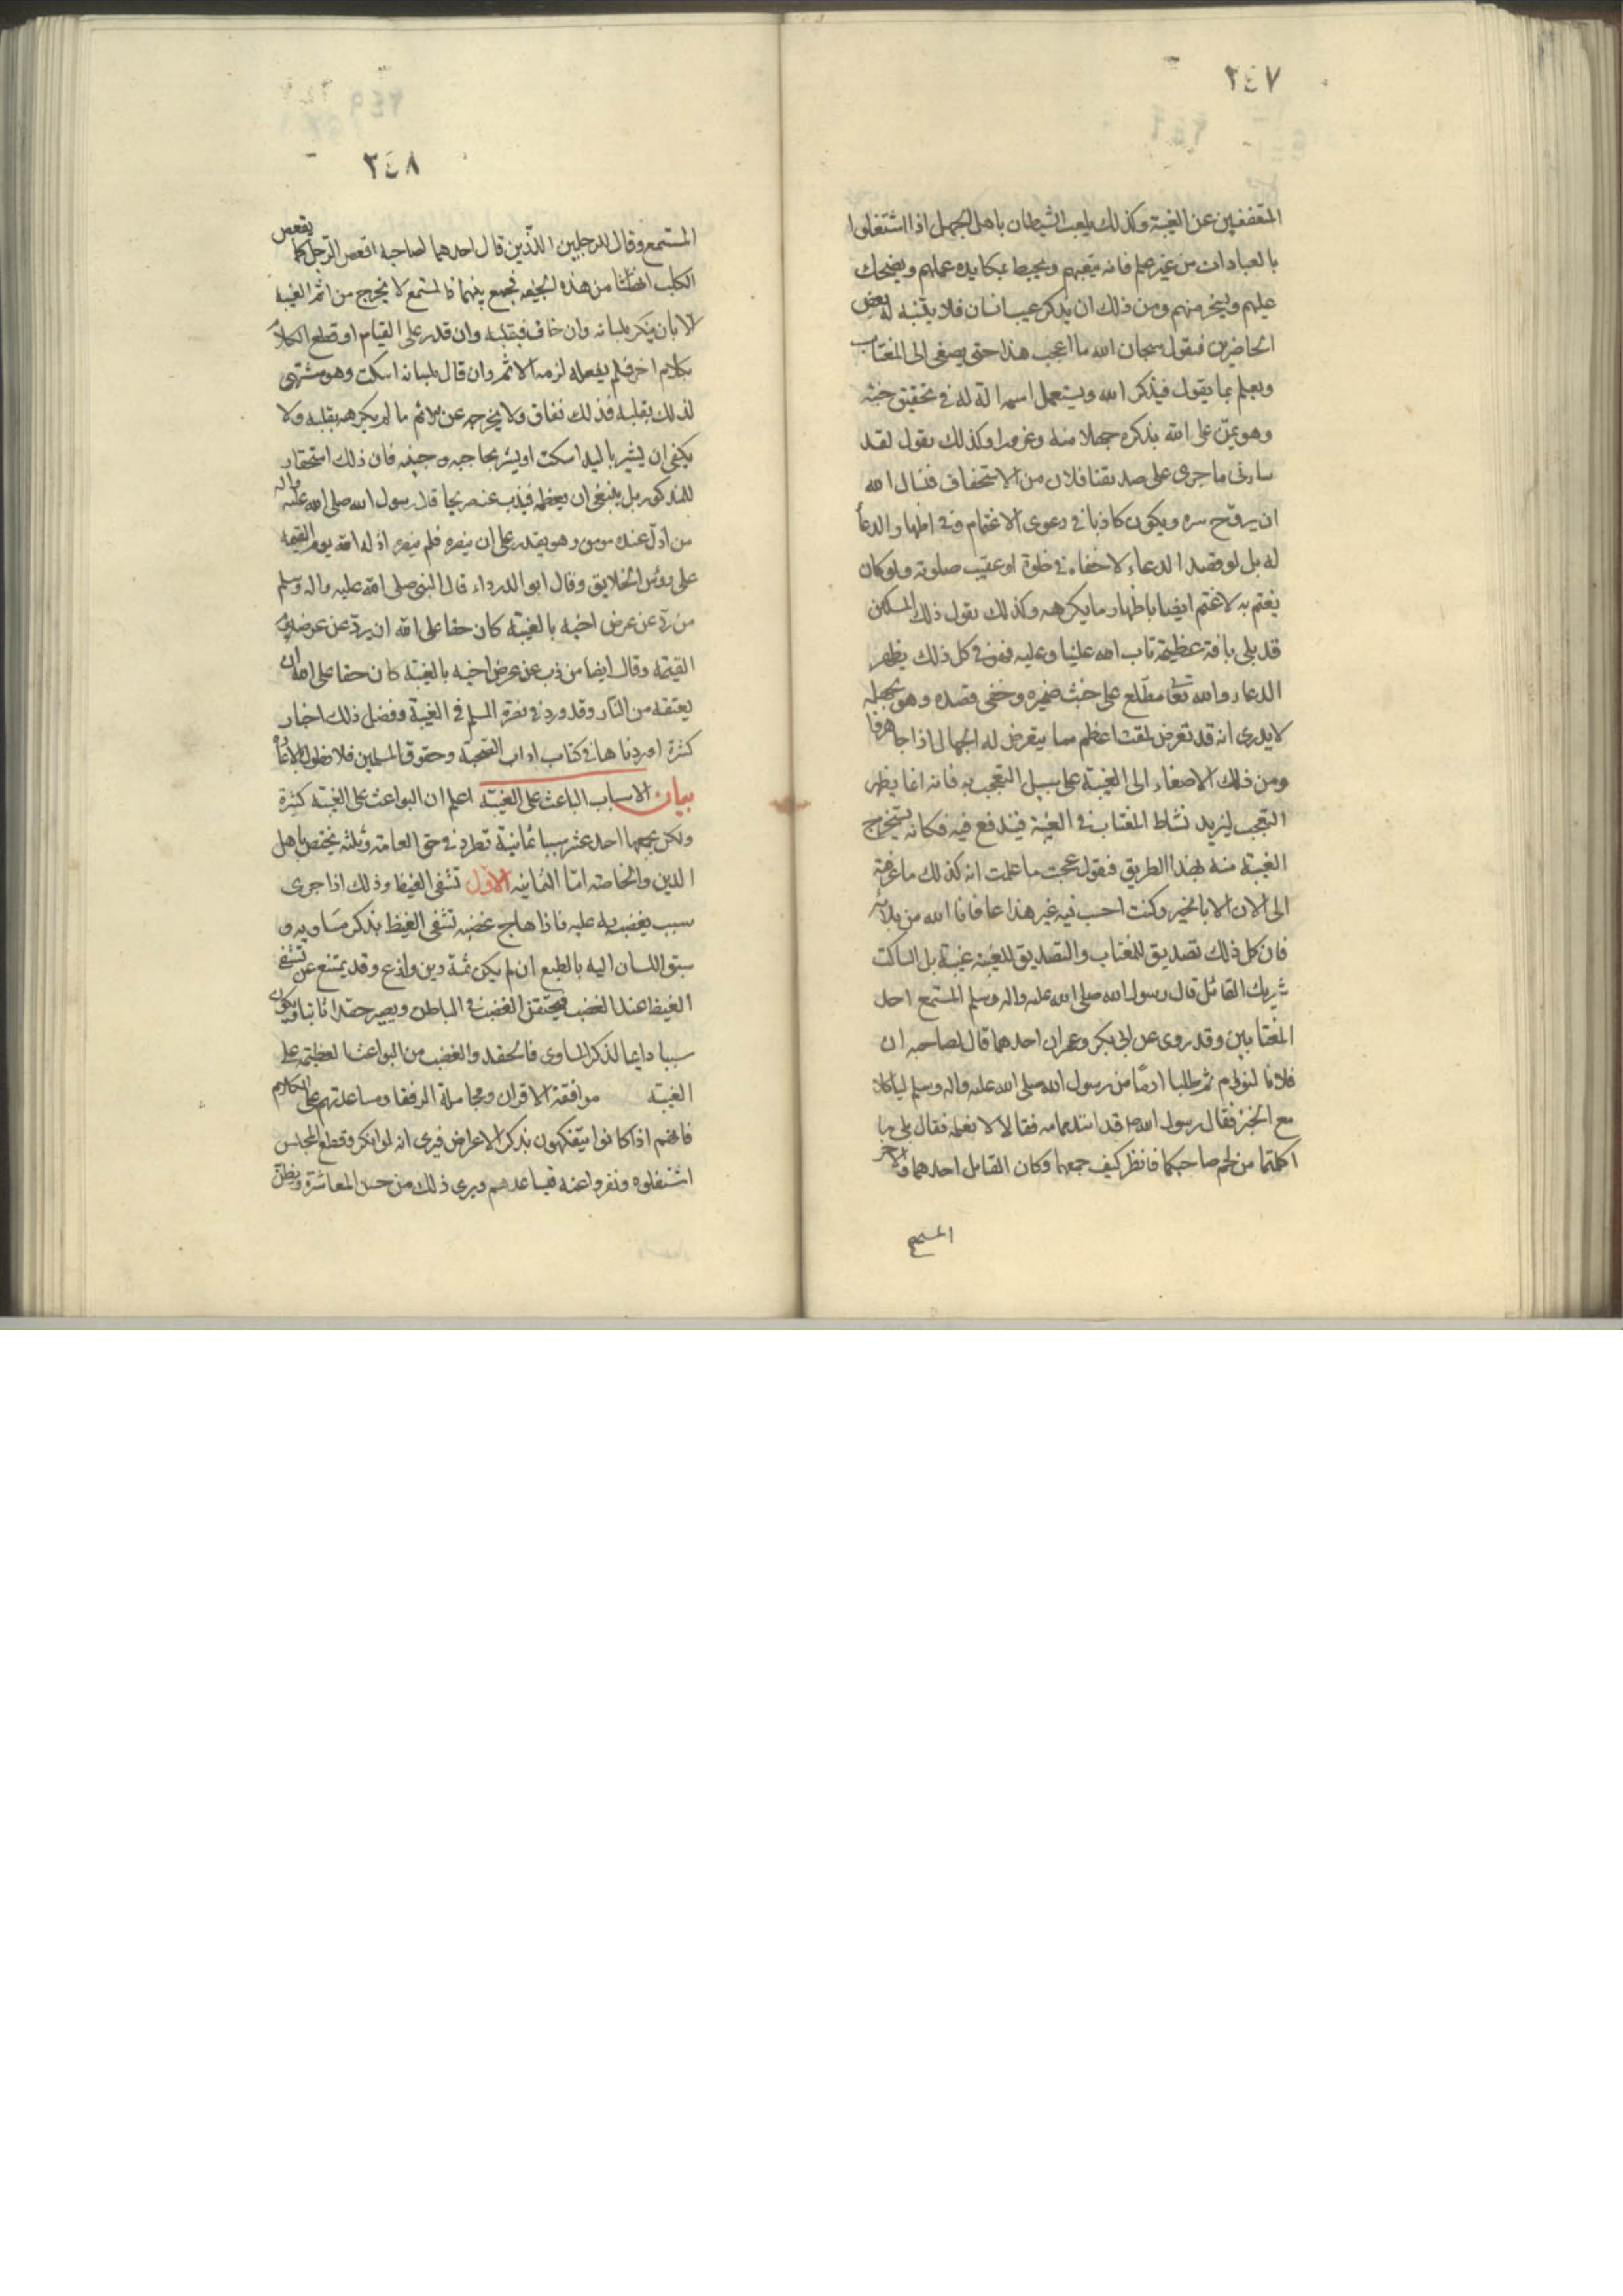 ٢٤٧
المتعففين عن الغيبة وكذلك يلعب الشيطان باهل الجهل اذا اشتغلوا
بالعبادات من غير علم فانه يتعبهم ويحبط بمكايده عملهم ويضحك
عليهم ويسخر منهم ومن ذلك ان يذكر عيب انسان فلا يتنبه له بعض
الحاضرين فيقول سبحان الله ما اعجب هذا حتى يصغى الى المغتاب
ويعلم بما يقول فيذكر الله ويستعمل اسمه الة له في تحقيق خبثه
وهو يمن على الله بذكره جهلا منه وغرورا وكذلك يقول لقد
ساءنى ما جرى على صديقنا فلان من الاستخفاف فنسال الله
ان يروح سره ويكون كاذبا في دعوى الاغتمام وفي اظهار الدعاء
له بل لو قصد الدعاء لاخفاه في خلوة او عقيب صلوته ولو كان
يغتم به لاغتم ايضا باظهار ما يكرهه وكذلك يقول ذلك المسكين
قد بلى بافة عظيمة تاب الله علينا وعليه فهو في كل ذلك يظهر
الدعاء والله تعا مطلع على خبث ضميره وخفى قصده وهو بجهله
لا يدرى انه قد تعرض لمقت اعظم مما يتعرض له الجهال اذا جاهروا
ومن ذلك الاصغاء الى الغيبة على سبيل التعجب به فانه انما يظهر
التعجب ليزيد نشاط المغتاب في الغيبة فيندفع فيه فكانه يستخرج
الغيبة منه بهذا الطريق فيقول عجبت ما علمت انه كذلك ما عرفته
الى الان الا بالخير وكنت احسب فيه غير هذا عافانا الله من بلائه
فان كل ذلك تصديق للمغتاب والتصديق للغيبة غيبة بل الساكت
شريك القائل قال رسول الله صلى الله عليه واله وسلم المستمع احد
المغتابين وقد روى عن ابى بكر وعمر ان احدهما قال لصاحبه ان
فلانا لنؤم ثم طلبا ادما من رسول الله صلى الله عليه واله وسلم لياكلا
مع الخبز فقال رسول الله ص قد ائتدمتما فقالا لا نعلمه فقال بلى ما
اكلتما من لحم صاحبكما فانظر كيف جمعهما وكان القايل احدهما والاخر
المستمع
٢٤٨
المستمع وقال للرجلين اللذين قال احدهما لصاحبه اقعص الرجل كما يقعص
الكلب انهشا من هذه الجيفة فجمع بينهما فالمستمع لا يخرج من اثم الغيبة
الا بان ينكر بلسانه وان خاف فبقلبه وان قدر على القيام او قطع الكلام
بكلام اخر فلم يفعله لزمه الاثم وان قال بلسانه اسكت وهو مشتهى
لذلك بقلبه فذلك نفاق ولا يخرجه عن الاثم ما لم يكرهه بقلبه ولا
يكفى ان يشير باليد اسكت او يشير بحاجبه وجبينه فان ذلك استحقار
للمذكور بل ينبغى ان يعظمه فيذب عنه صريحا قال رسول الله صلى الله عليه واله
من اذل عنده مومن وهو يقدر على ان ينصره فلم ينصره اذله الله يوم القيمة
على رؤس الخلايق وقال ابو الدرداء قال النبى صلى الله عليه واله وسلم
من رد عن عرض اخيه بالغيبة كان حقا على الله ان يرد عن عرضه يوم
القيمة وقال ايضا من ذب عن عرض اخيه بالغيبة كان حقا على الله ان
يعتقه من النار وقد ورد في نصرة المسلم في الغيبة وفضل ذلك اخبار
كثيرة اوردناها في كتاب اداب الصحبة وحقوق المسلمين فلا نطول بالاعادة
بيان الاسباب الباعث على الغيبة اعلم ان البواعث على الغيبة كثيرة
ولكن يجمعها احد عشر سببا ثمانية تطرد في حق العامة وثلثه يختص باهل
الدين والخاصة اما الثمانيه الاول تشفى الغيظ وذلك اذا جرى
سبب يغضب به عليه فاذا هاج غضبه تشفى الغيظ بذكر مساويه و
سبق اللسان اليه بالطبع ان لم يكن ثمة دين وازع وقد يمتنع عن تشفى
الغيظ عند الغضب فيحتقن الغضب في الباطن ويصير حقدا ثابتا ويكون
سببا دايما لذكر المساوى فالحقد والغضب من البواعث العظيمة على
الغيبة موافقة الاقران ومجاملة الرفقا ومساعدتهم على الكلام
فانهم اذا كانوا يتفكهون بذكر الاعراض فيرى انه لو انكر وقطع المجلس
استثقلوه ونفروا عنه فيساعدهم ويرى ذلك من حسن المعاشرة ويظن